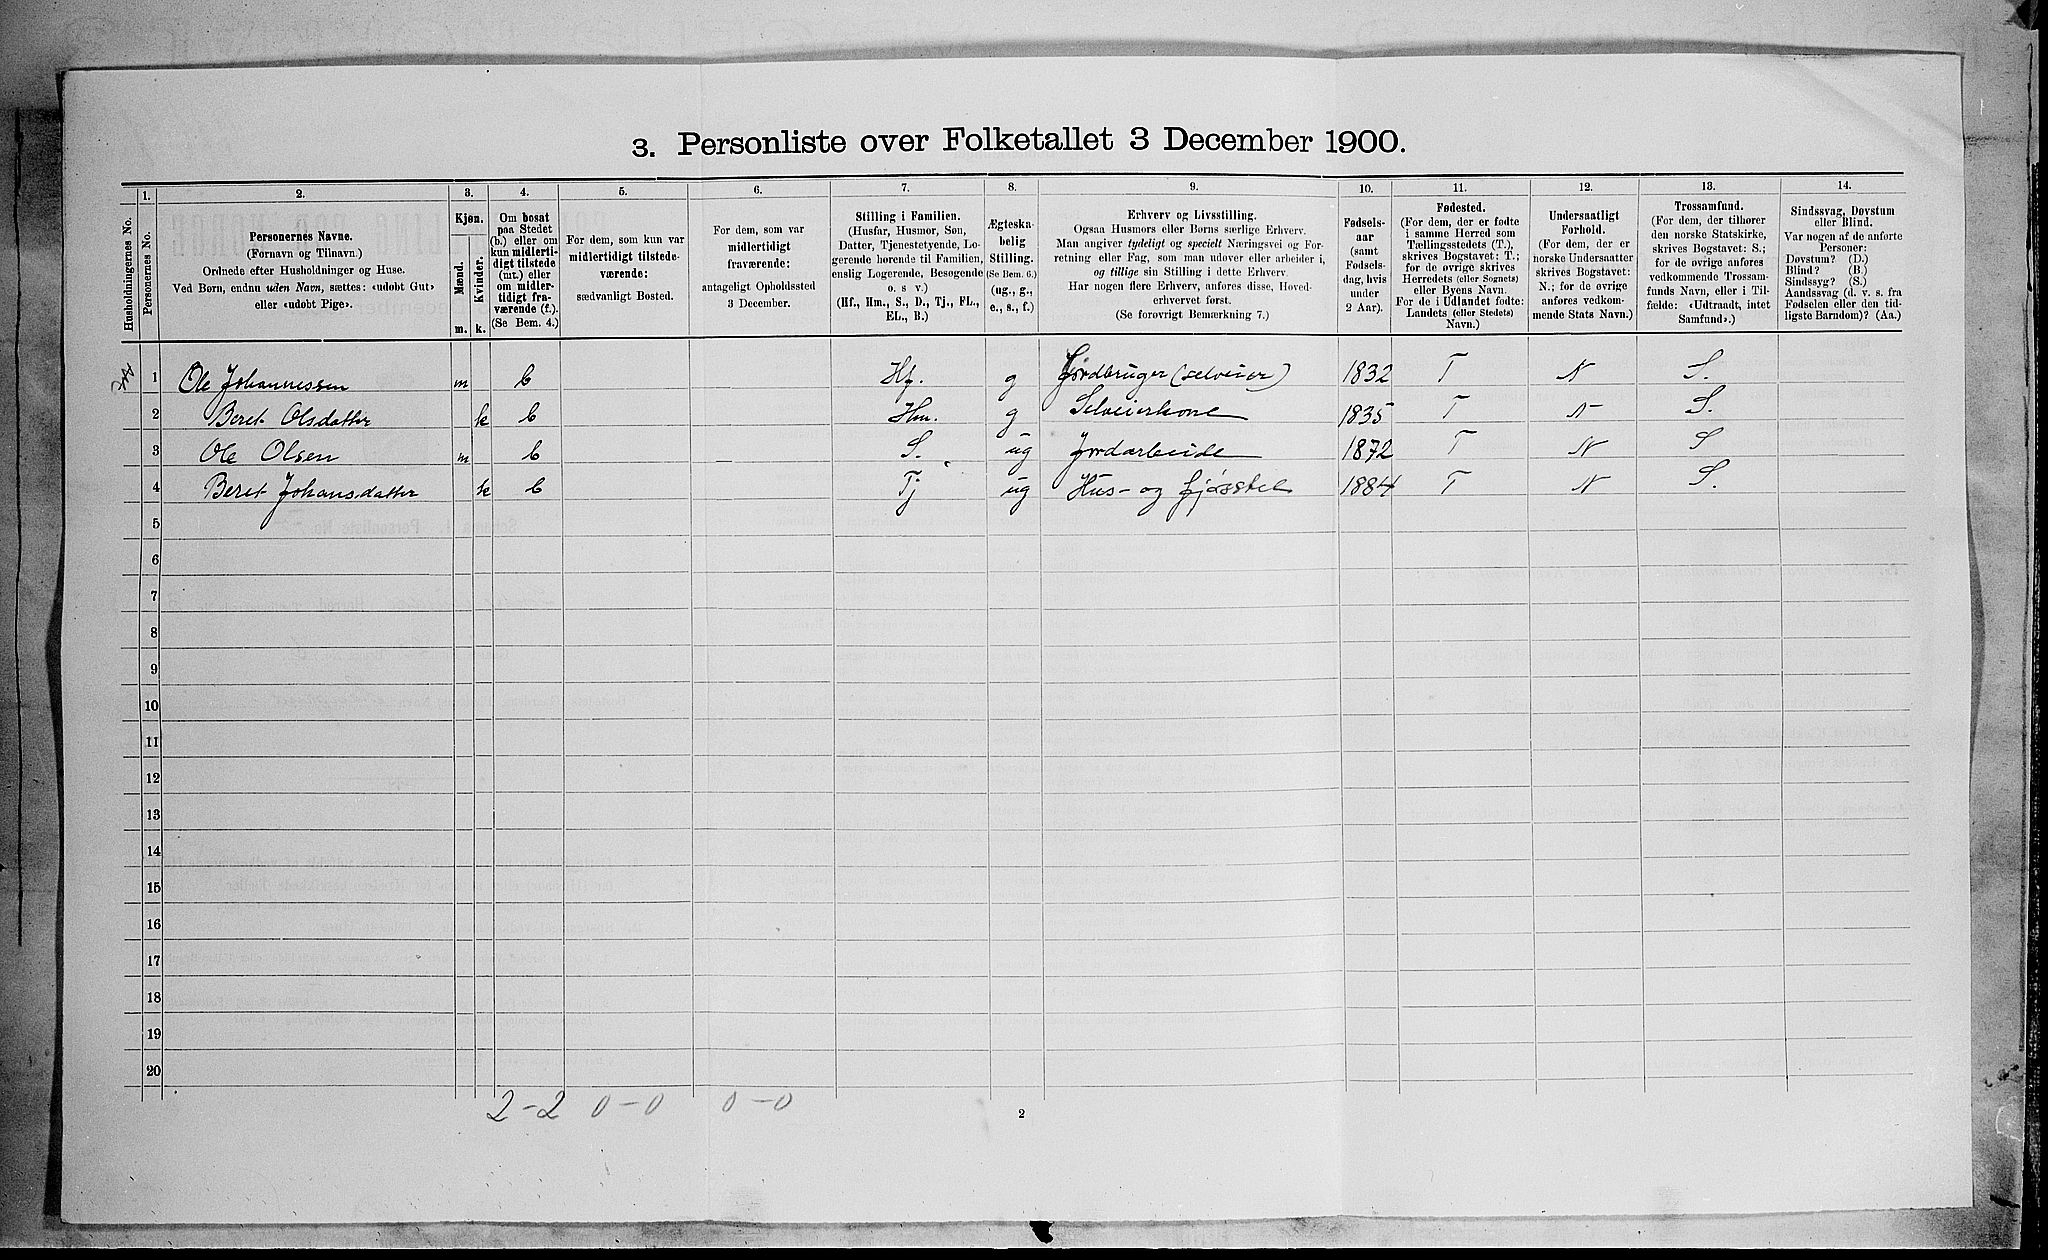 3. Personliste over Folketallet 3 December 1900.
1. 2. 3. 4. 5. 6. 7. 8. 9. 10. 11. 12. 13. 14.
Husholdningernes No.
Personernes No.
Personernes Navne.
(Fornavn og Tilnavn.)
Ordnede efter Husholdninger og Huse.
Ved Børn, endnu uden Navn, sættes: «udøbt Gut»
eller «udøbt Pige».
Kjøn.
Mænd.
Kvinder.
m. k.
Om bosat
paa Stedet
(b.) eller om
kun midlerti-
digt tilstede
(mt.) eller
om midler-
tidigt fra-
værende (f.).
(Se Bem. 4.)
For dem, som kun var
midlertidigt tilstede-
værende:
sædvanligt Bosted.
For dem, som var
midlertidigt
fraværende:
antageligt Opholdssted
3 December.
Stilling i Familien.
(Husfar, Husmor, Søn,
Datter, Tjenestetyende, Lo-
gerende hørende til Familien,
enslig Logerende, Besøgende
o. s. v.)
(Hf., Hm., S., D., Tj., FL.,
EL., B.)
Ægteska-
belig
Stilling.
(Se Bem. 6.)
(ug., g.,
e., s., f.)
Erhverv og Livsstilling.
Ogsaa Husmors eller Børns særlige Erhverv.
Man angiver tydeligt og specielt Næringsvei og For-
retning eller Fag, som man udøver eller arbeider i,
og tillige sin Stilling i dette Erhverv.
Har nogen flere Erhverv, anføres disse, Hoved-
erhvervet først.
(Se forøvrigt Bemærkning 7.)
Fødsels-
aar
(samt
Fødsels-
dag, hvis
under
2 Aar).
Fødested.
(For dem, der er fødte
i samme Herred som
Tællingsstedets (T.),
skrives Bogstavet: T.;
for de øvrige skrives
Herredets (eller Sognets)
eller Byens Navn.
For de i Udlandet fødte:
Landets (eller Stedets)
Navn.)
Undersaatligt
Forhold.
(For dem, der er
norske Undersaatter
skrives Bogstavet:
N.; for de øvrige
anføres vedkom-
mende Stats Navn.)
Trossamfund.
(For dem, der tilhører
den norske Statskirke,
skrives Bogstavet: S.;
for de øvrige anføres
vedkommende Trossam-
funds Navn, eller i Til-
fælde: «Udtraadt, intet
Samfund».)
Sindssvag, Døvstum
eller Blind.
Var nogen af de anførte
Personer:
Døvstum? (D.)
Blind? (B.)
Sindssyg? (S.)
Aandssvag (d. v. s. fra
Fødselen eller den tid-
ligste Barndom)? (Aa.)
1 Ole Johannessen m b Hf. g Jordbruger (selveier) 1832 T N S.
2 Beret Olsdatter k b Hm. g Selveierkone 1835 T N S.
3 Ole Olsen m b S. ug Jordarbeide 1872 T N S
4 Beret Johansdatter k b Tj ug Hus- og fjøsstel 1884 T N S.
5
6
7
8
9
10
11
12
13
14
15
16
17
18
19
20
2-2 0-0 0-0
2